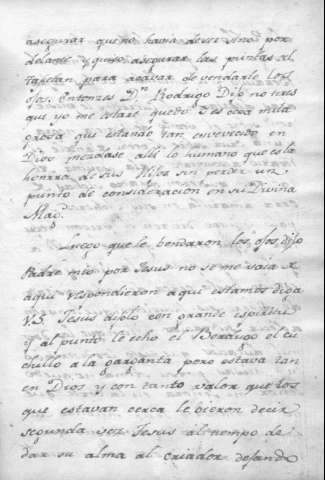 asegurar que no havia de ser sino por
delante y quiso asegurar las puntas al
tafetan para acavar de vendarle los
ojos. Entonzes Dn Rodrigo Dijo no teneis
que yo me estare quedo. Y es cosa mila
grosa que estando tan envevecido en
Dios mezclase alli lo humano que esta
honrra de sus hijos sin perder un
punto de consideracion en su Divina
Magd.
Luego que le bendaron los ojos, dijo
Padre mio por Jesus no se me vaia de
aqui respondieron aqui estamos diga
V.S. Jesus dijolo con grande espiritu
y al punto le echo el Berdugo el cu
chillo a la garganta pero estava tan
en Dios y con tanto valor que los
que estavan cerca le oieron decir
segunda vez Jesus al tiempo de
dar su alma al criador dejando